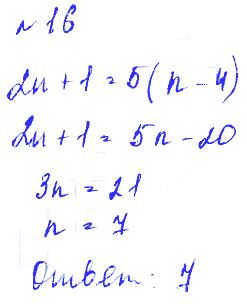 № 16
2n + 1 = 5(n - 4)
2n + 1 = 5n - 20
3n = 21
n = 7
Ответ: 7